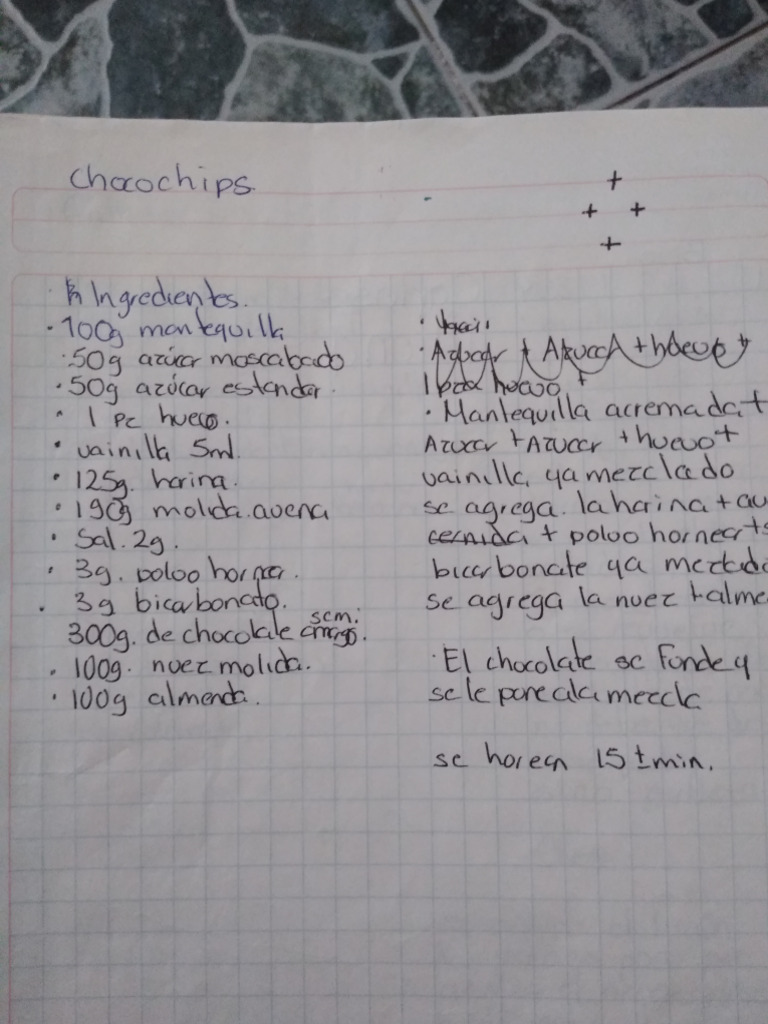 Chocochips.
Ingredientes.
· 100g mantequilla
· 50g azúcar moscabado
· 50g azúcar estandar.
· 1 Pc huevo.
· vainilla 5ml.
· 125g. harina.
· 190g molida.avena
· Sal. 2g.
· 3g. polvo hornear.
· 3g bicarbonato.
300g. de chocolate sem. amargo.
· 100g. nuez molida.
· 100g almenda.
+
+ +
+
· Azucar + Azucar + huevo +
1 huevo +
· Mantequilla acremada +
Azucar + Azucar + huevo +
vainilla, ya mezclado
se agrega. la harina + av
cernida + polvo hornear + s
bicarbonate ya mezclado
se agrega la nuez + alme
· El chocolate se Funde y
se le pone a la mezcla
se horean 15 ± min.